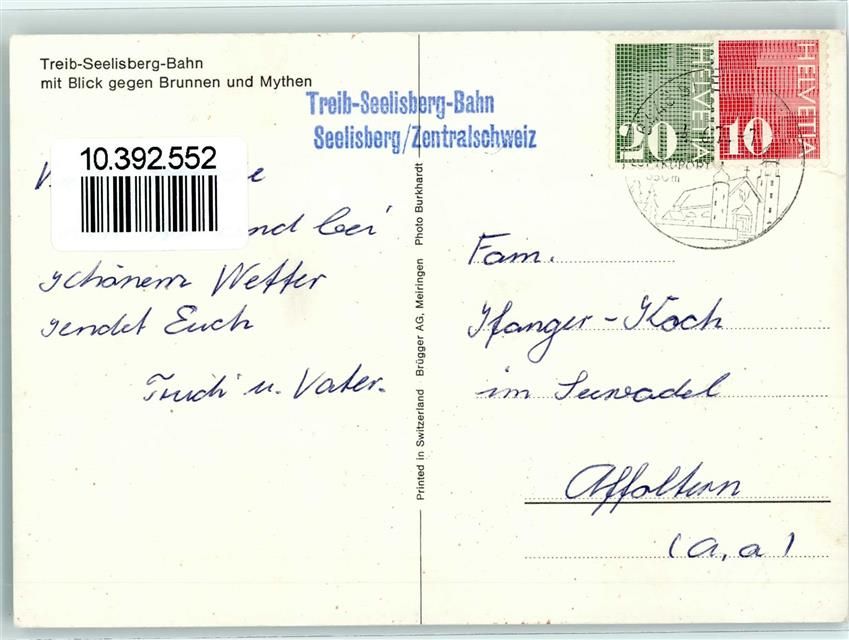 Treib-Seelisberg-Bahn
mit Blick gegen Brunnen und Mythen
Treib-Seelisberg-Bahn
Seelisberg/Zentralschweiz
10.392.552
nd bei
schönem Wetter
sendet Euch
Trudi u. Vater.
Printed in Switzerland Brügger AG, Meiringen Photo Burkhardt
HELVETIA
20
HELVETIA
10
Fam.
Ifanger-Koch
im Seewadel
Affoltern
(a, a)